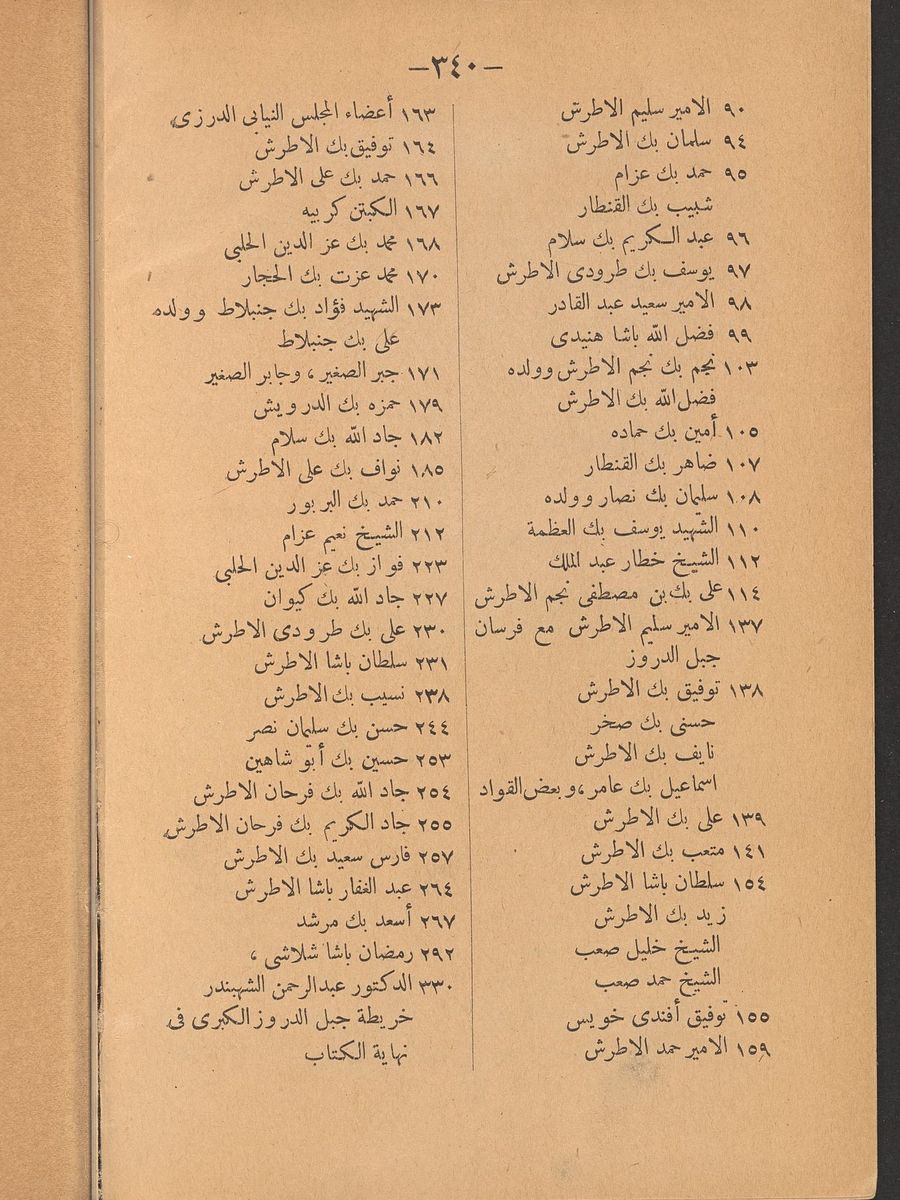 —٣٤٠—
٩٠ الامير سليم الاطرش
٩٤ سلمان بك الاطرش
٩٥ حمد بك عزام
شبيب بك القنطار
٩٦ عبد الكريم بك سلام
٩٧ يوسف بك طرودى الاطرش
٩٨ الامير سعيد عبد القادر
٩٩ فضل الله باشا هنيدى
١٠٣ نجم بك نجم الاطرش وولده
فضل الله بك الاطرش
١٠٥ أمين بك حماده
١٠٧ ضاهر بك القنطار
١٠٨ سليمان بك نصار وولده
١١٠ الشهيد يوسف بك العظمة
١١٢ الشيخ خطار عبد الملك
١١٤ على بك بن مصطفى نجم الاطرش
١٣٧ الامير سليم الاطرش مع فرسان
جبل الدروز
١٣٨ توفيق بك الاطرش
حسنى بك صخر
نايف بك الاطرش
اسماعيل بك عامر، وبعض القواد
١٣٩ على بك الاطرش
١٤١ متعب بك الاطرش
١٥٤ سلطان باشا الاطرش
زيد بك الاطرش
الشيخ خليل صعب
الشيخ حمد صعب
١٥٥ توفيق أفندى خويس
١٥٩ الامير حمد الاطرش
١٦٣ أعضاء المجلس النيابى الدرزى
١٦٤ توفيق بك الاطرش
١٦٦ حمد بك على الاطرش
١٦٧ الكبتن كربيه
١٦٨ محمد بك عز الدين الحلبى
١٧٠ محمد عزت بك الحجار
١٧٣ الشهيد فؤاد بك جنبلاط وولده
على بك جنبلاط
١٧١ جبر الصغير، وجابر الصغير
١٧٩ حمزه بك الدرويش
١٨٢ جاد الله بك سلام
١٨٥ نواف بك على الاطرش
٢١٠ حمد بك البربور
٢١٢ الشيخ نعيم عزام
٢٢٣ فواز بك عز الدين الحلبى
٢٢٧ جاد الله بك كيوان
٢٣٠ على بك طرودى الاطرش
٢٣١ سلطان باشا الاطرش
٢٣٨ نسيب بك الاطرش
٢٤٤ حسن بك سليمان نصر
٢٥٣ حسين بك أبو شاهين
٢٥٤ جاد الله بك فرحان الاطرش
٢٥٥ جاد الكريم بك فرحان الاطرش
٢٥٧ فارس سعيد بك الاطرش
٢٦٤ عبد الغفار باشا الاطرش
٢٦٧ أسعد بك مرشد
٢٩٢ رمضان باشا شلاشى ،
٣٣٠ الدكتور عبدالرحمن الشهبندر
خريطة جبل الدروز الكبرى فى
نهاية الكتاب